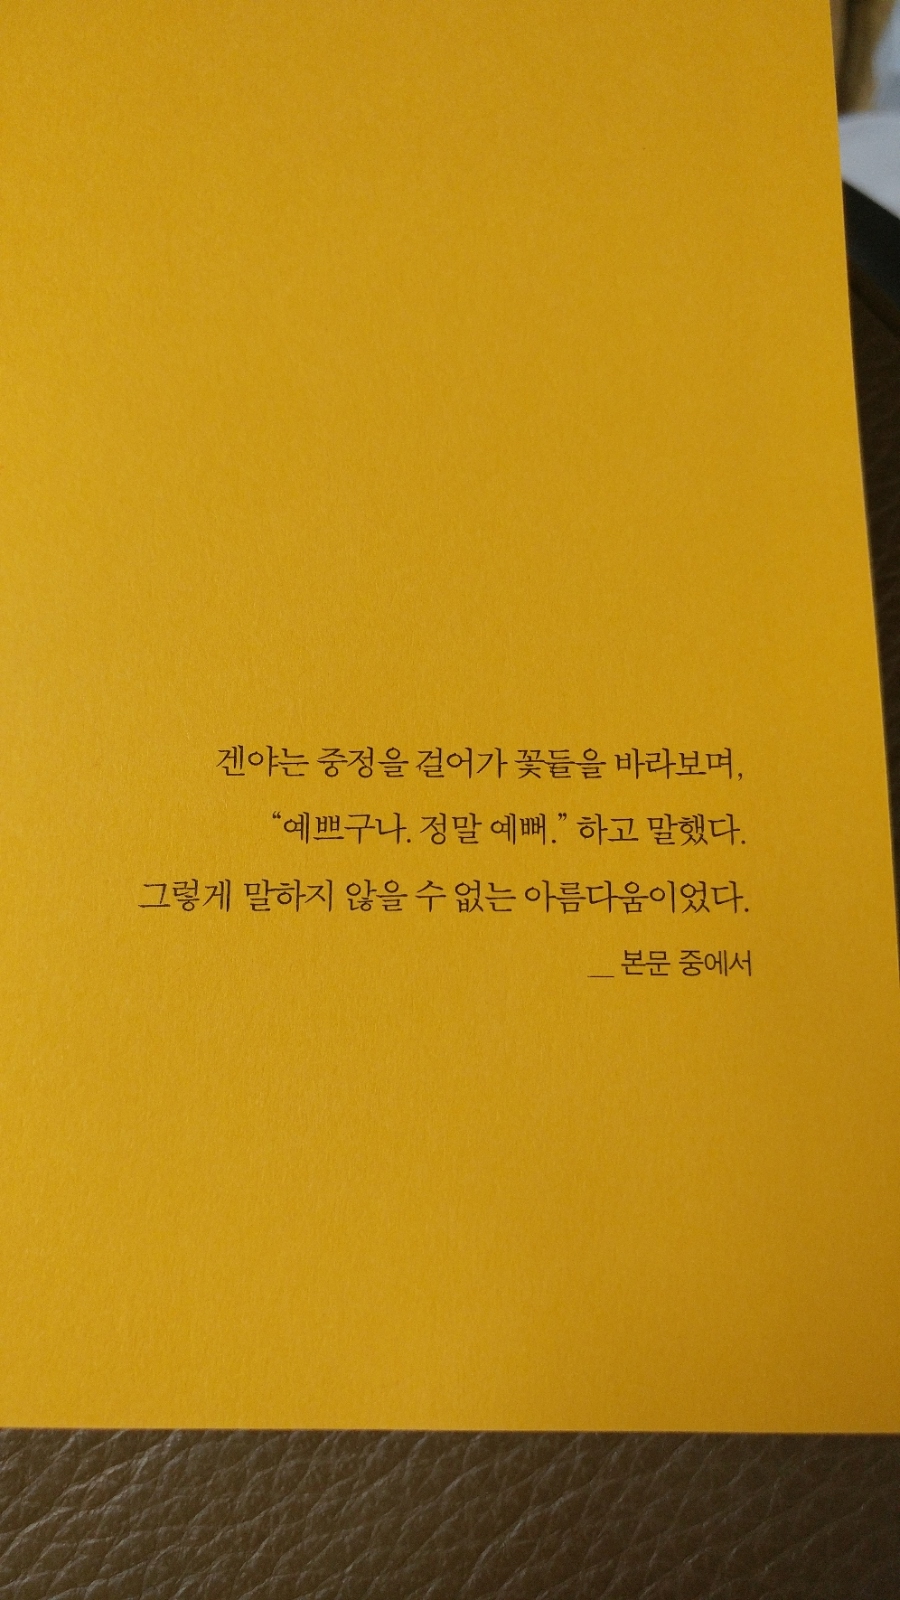 겐야는 중정을 걸어가 꽃들을 바라보며,
“예쁘구나. 정말 예뻐.” 하고 말했다.
그렇게 말하지 않을 수 없는 아름다움이었다.
__ 본문 중에서